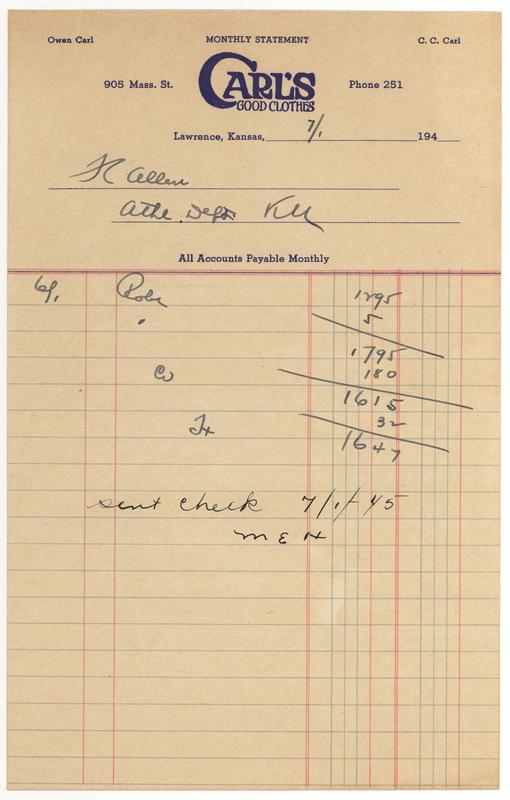 Owen Carl MONTHLY STATEMENT C. C. Carl
905 Mass. St. CARL'S Phone 251
GOOD CLOTHES
Lawrence, Kansas, 7/1 194
F C Allen
Athe. Dept. KU
All Accounts Payable Monthly
6/1 Robe 1295
" 5
1795
Co 180
1615
Tx 32
1647
sent check 7/1/45
M E H